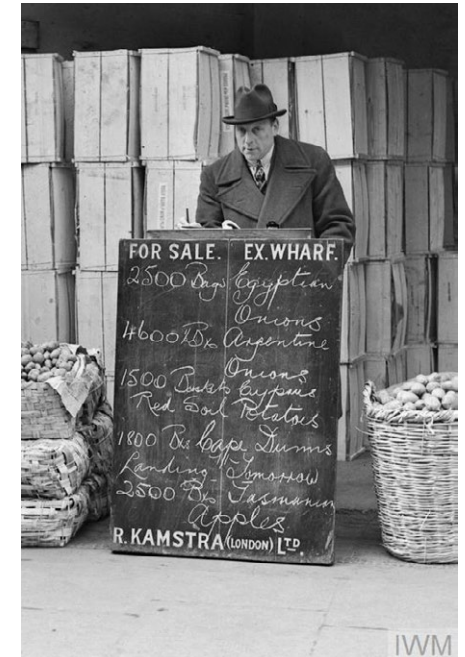 FOR SALE. EX. WHARF.
2500 Bags Egyptian
Onions
4600 Bxs Argentine
Onions
1500 Baskets Cyprus
Red Soil Potatoes
1800 Bxs Cape
Landing Tomorrow
2500 Bxs Tasmanian
Apples
R. KAMSTRA (LONDON) LTD.
IWM